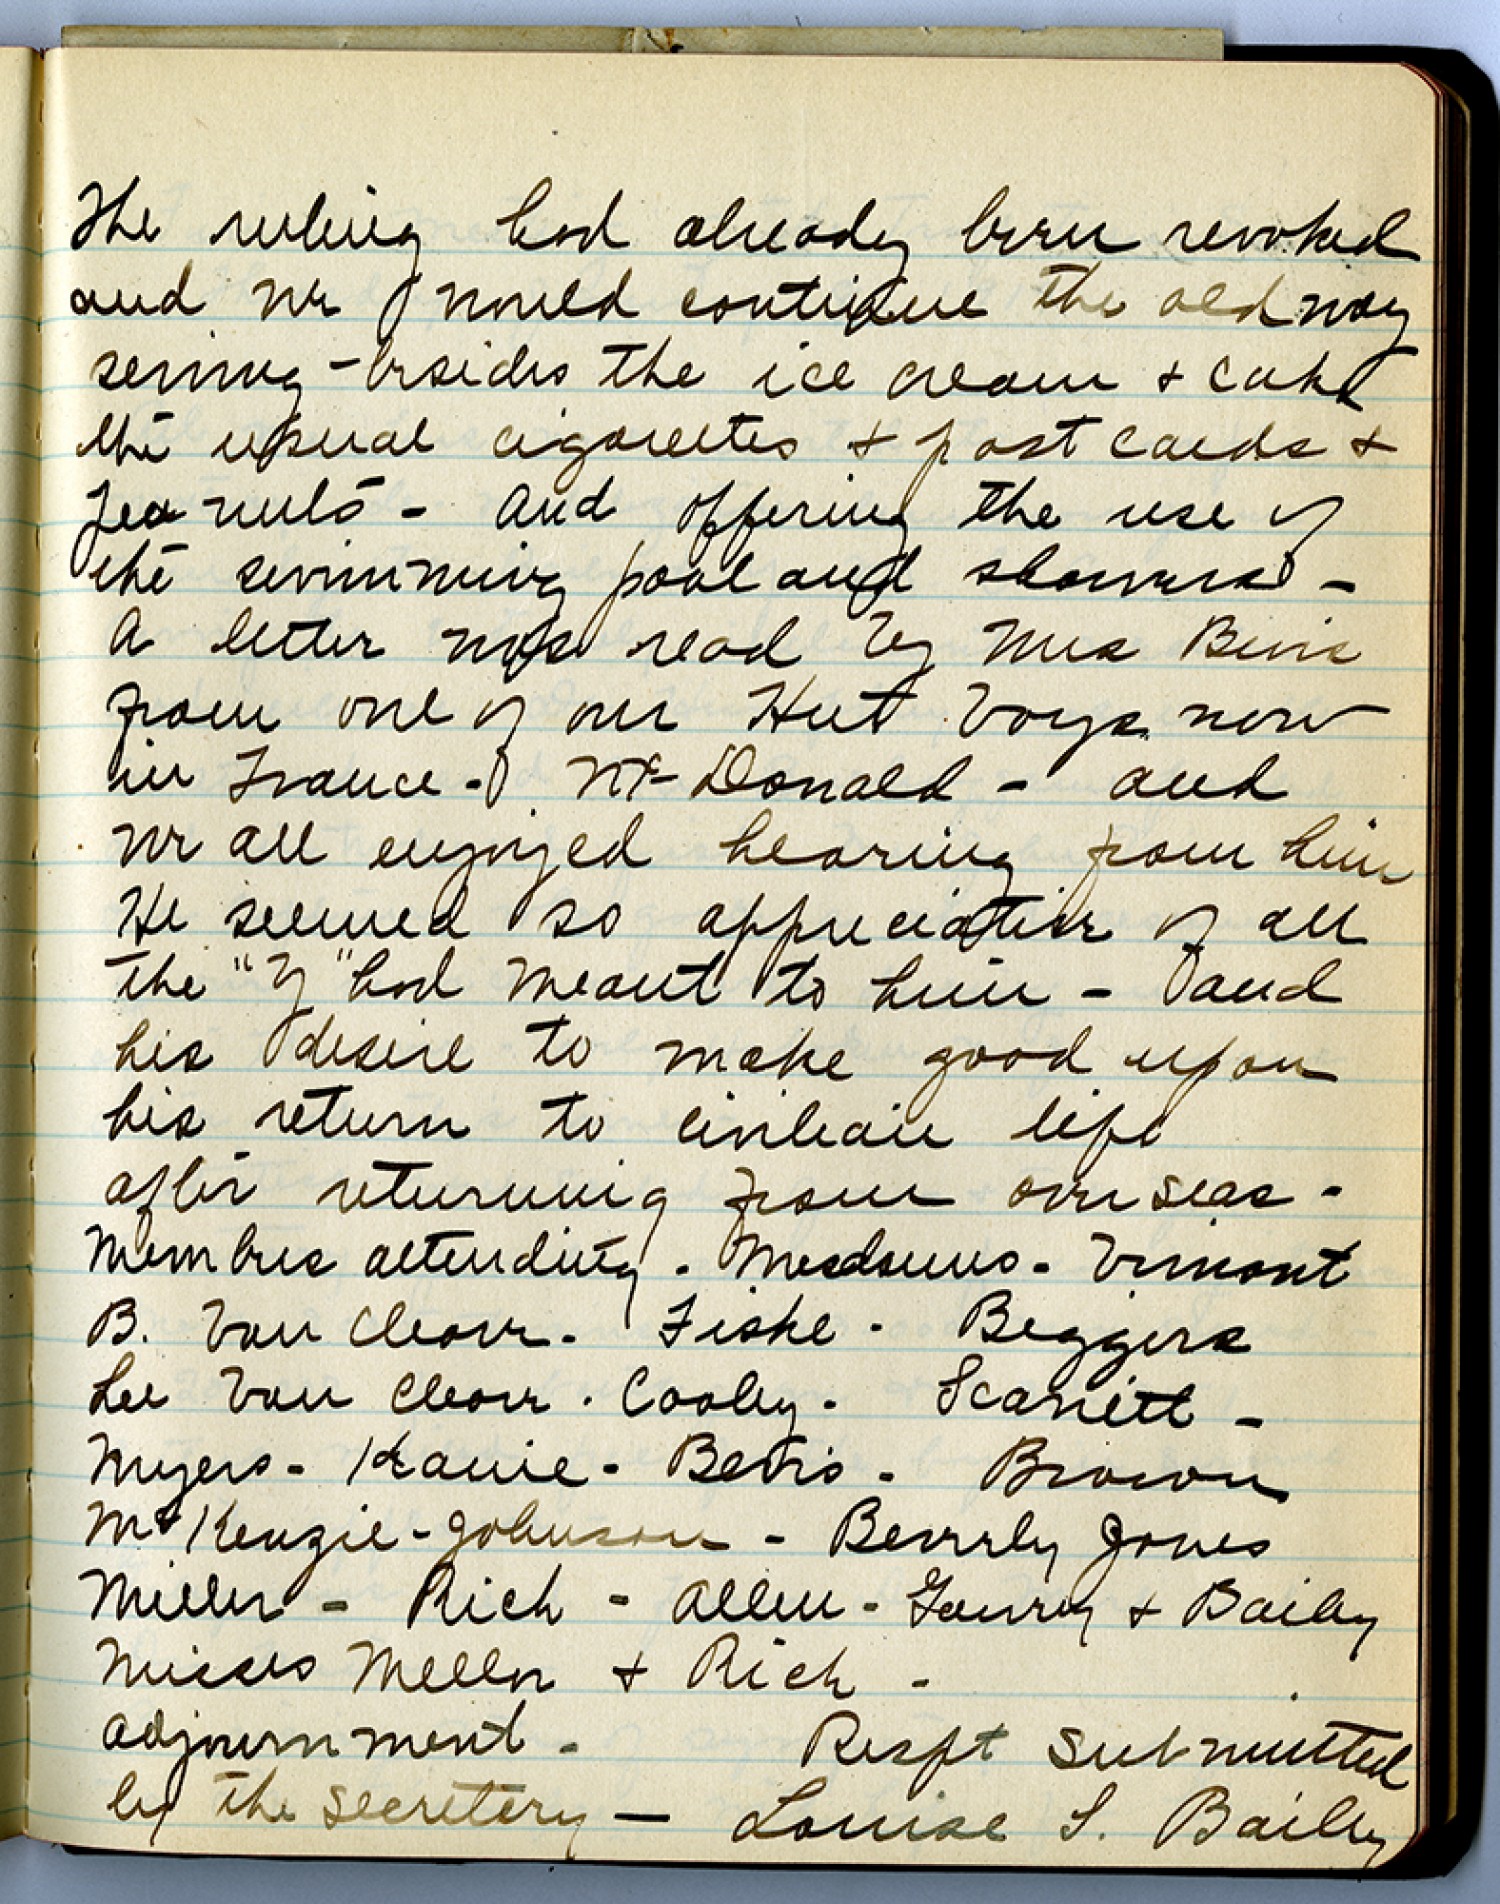 The ruling had already been revoked
and we would continue the old way
serving - besides the ice cream + cake
the usual cigarettes + post cards +
peanuts - and offering the use of
the swimming pool and showers -
A letter was read by Mrs Bevis
from one of our Hut boys now
in France - McDonald - and
we all enjoyed hearing from him
He seemed so appreciative of all
the "Y" had meant to him - and
his desire to make good upon
his return to civilian life
after returning from over seas -
Members attending - Mesdames - Vimont
B. Van Cleave - Fiske - Beggers
Lee Van Cleave - Cooley - Scarritt -
Myers - Kanie - Bevis - Brown
McKenzie - Johnson - Beverly Jones
Miller - Rich - Allen - & Bailey
Misses Meller + Rich -
adjournment - Respt Submitted
by the secretery - Louise S. Bailey